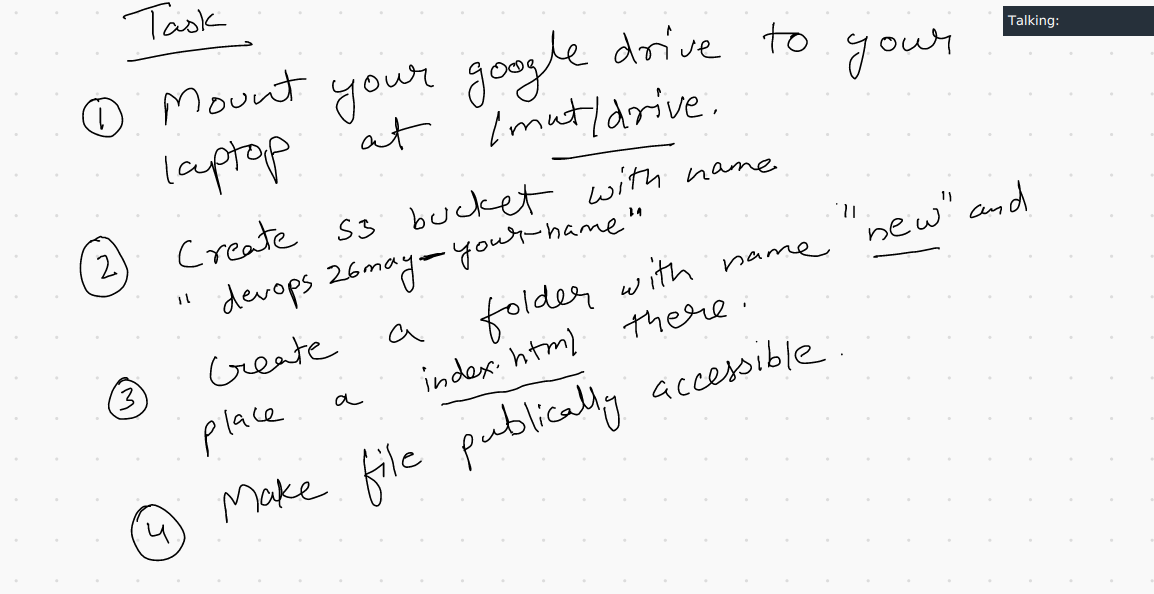 Talking:
Task
① Mount your google drive to your
laptop at /mnt/drive.
② Create S3 bucket with name
" devops26may-your-name"
③ Create a folder with name "new" and
place a index.html there.
④ Make file publically accessible.